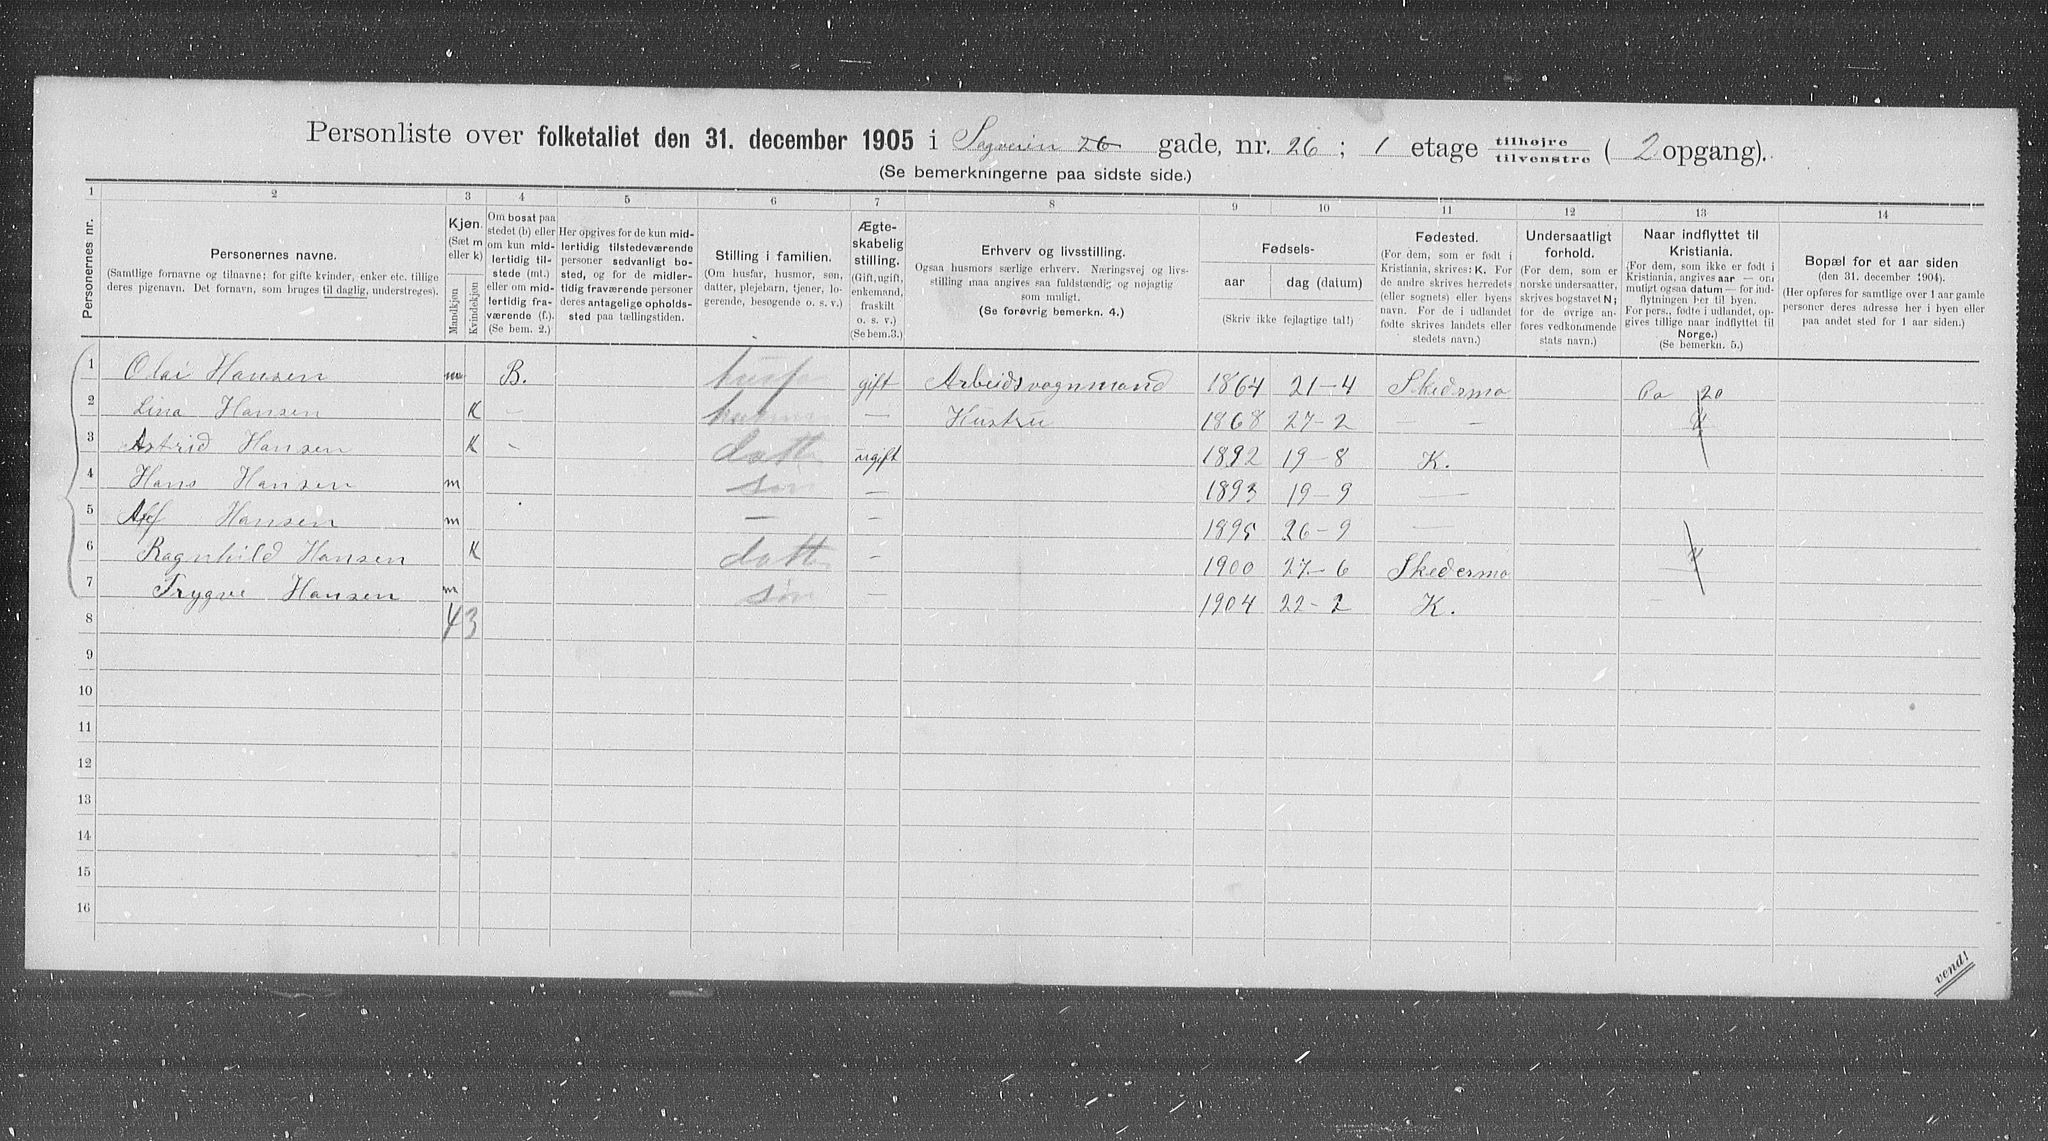 Personliste over folketallet den 31. december 1905 i Sagveien 26 gade, nr. 26 ; 1 etage tilhøjre tilvenstre ( 2 opgang).
(Se bemerkningerne paa sidste side.)
1 2 3 4 5 6 7 8 9 10 11 12 13 14
Personernes nr.
Personernes navne.
(Samtlige fornavne og tilnavne; for gifte kvinder, enker etc. tillige
deres pigenavn. Det fornavn, som bruges til daglig, understreges).
Kjøn.
(Sæt m
eller k)
Mandkjøn
Kvindekjøn
Om bosat paa
stedet (b) eller
om kun mid-
lertidig til-
stede (mt.)
eller om mid-
lertidig fra-
værende (f.).
(Se bem. 2.)
Her opgives for de kun mid-
lertidig tilstedeværende
personer sedvanligt bo-
sted, og for de midler-
tidig fraværende personer
deres antagelige opholds-
sted paa tællingstiden.
Stilling i familien.
(Om husfar, husmor, søn,
datter, plejebarn, tjener, lo-
gerende, besøgende o. s. v.)
Ægte-
skabelig
stilling.
(Gift, ugift,
enkemand,
fraskilt
o. s. v.)
(Se bem.3.)
Erhverv og livsstilling.
Ogsaa husmors særlige erhverv. Næringsvej og livs-
stilling maa angives saa fuldstændig og nøjagtig
som muligt.
(Se forøvrig bemerkn. 4.)
Fødsels-
aar dag (datum)
(Skriv ikke fejlagtige tal!)
Fødested.
(For dem, som er født i
Kristiania, skrives: K. For
de andre skrives herredets
(eller sognets) eller byens
navn. For de i udlandet
fødte skrives landets eller
stedets navn.)
Undersaatligt
forhold.
(For dem, som er
norske undersaatter,
skrives bogstavet N;
for de øvrige an-
føres vedkommende
stats navn.)
Naar indflyttet til
Kristiania.
(For dem, som ikke er født i
Kristiania, angives aar — om
muligt ogsaa datum — for ind-
flytningen her til byen.
For pers., fødte i udlandet, op-
gives tillige naar indflyttet til
Norge.)
(Se bemerkn. 5.)
Bopæl for et aar siden
(den 31. december 1904).
(Her opføres for samtlige over 1 aar gamle
personer deres adresse her i byen eller
paa andet sted for 1 aar siden.)
1 Olai Hansen m B. husf gift Arbeidsvognmand 1864 21-4 Skedsmo Ca 20
2 Lina Hansen K — husmor — Hustru 1868 27-2 — —
3 Astrid Hansen K — datt ugift 1892 19-8 K.
4 Hans Hansen m søn — 1893 19-9 —
5 Alf Hansen m — — 1895 26-9 —
6 Ragnhild Hansen K datt — 1900 27-6 Skedsmo
7 Trygve Hansen m søn — 1904 22-2 K.
8 4 3
9
10
11
12
13
14
15
16
vend!